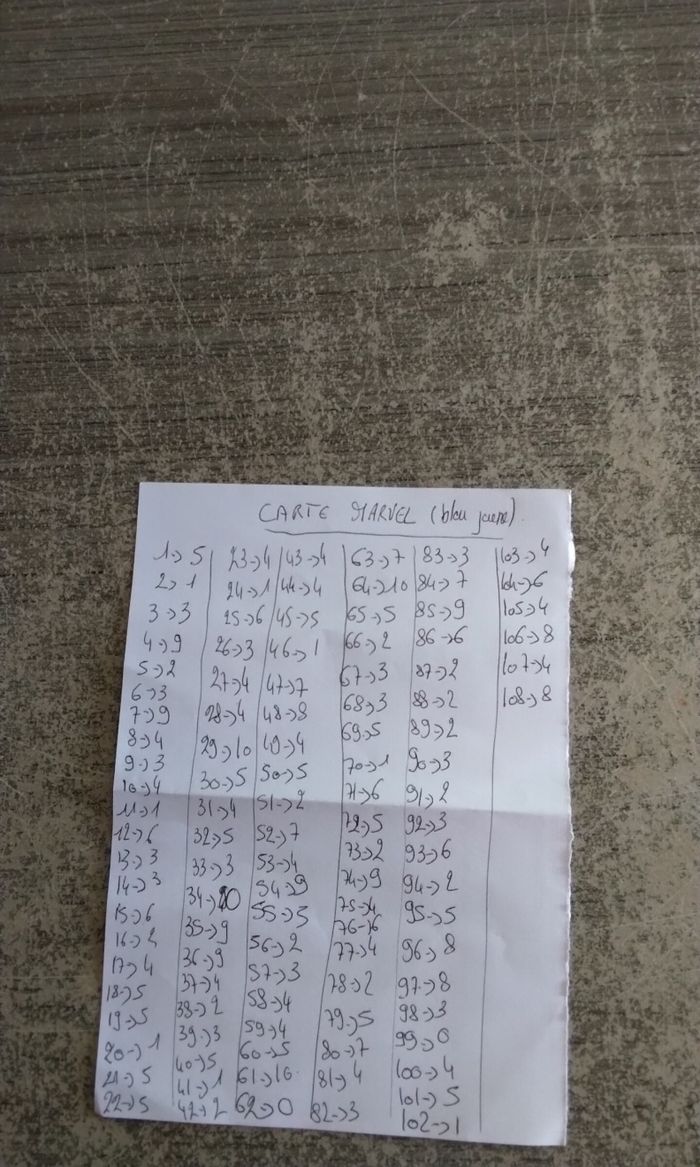 CARTE MARVEL (bleu jaune).
1->5
2->1
3->3
4->9
5->2
6->3
7->9
8->4
9->3
10->4
11->1
12->6
13->3
14->3
15->6
16->2
17->4
18->5
19->5
20->1
21->5
22->5
23->4
24->1
25->6
26->3
27->4
28->4
29->10
30->5
31->4
32->5
33->3
34->10
35->9
36->9
37->4
38->2
39->3
40->5
41->1
42->2
43->4
44->4
45->5
46->1
47->7
48->8
49->4
50->5
51->2
52->7
53->4
54->9
55->5
56->2
57->3
58->4
59->4
60->5
61->10
62->0
63->7
64->10
65->5
66->2
67->3
68->3
69->5
70->1
71->6
72->5
73->2
74->9
75->4
76->6
77->4
78->2
79->5
80->7
81->4
82->3
83->3
84->7
85->9
86->6
87->2
88->2
89->2
90->3
91->2
92->3
93->6
94->2
95->5
96->8
97->8
98->3
99->0
100->4
101->5
102->1
103->4
104->6
105->4
106->8
107->4
108->8